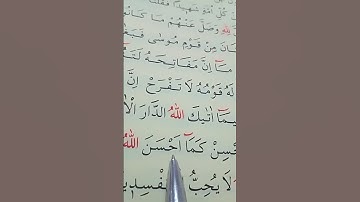 كُلِّ اُمَّةٍ شَهٖيدًا فَقُلْنَا
لِلّٰهِ وَضَلَّ عَنْهُمْ مَا كَانُوا
كَانَ مِنْ قَوْمِ مُوسٰى فَبَغٰى
مَٓا اِنَّ مَفَاتِحَهُ لَتَنُٓ
لَهُ قَوْمُهُ لَا تَفْرَحْ اِنَّ
فٖيمَٓا اٰتٰيكَ اللّٰهُ الدَّارَ الْاٰ
حْسِنْ كَمَٓا اَحْسَنَ اللّٰهُ
لَا يُحِبُّ الْمُفْسِدٖينَ